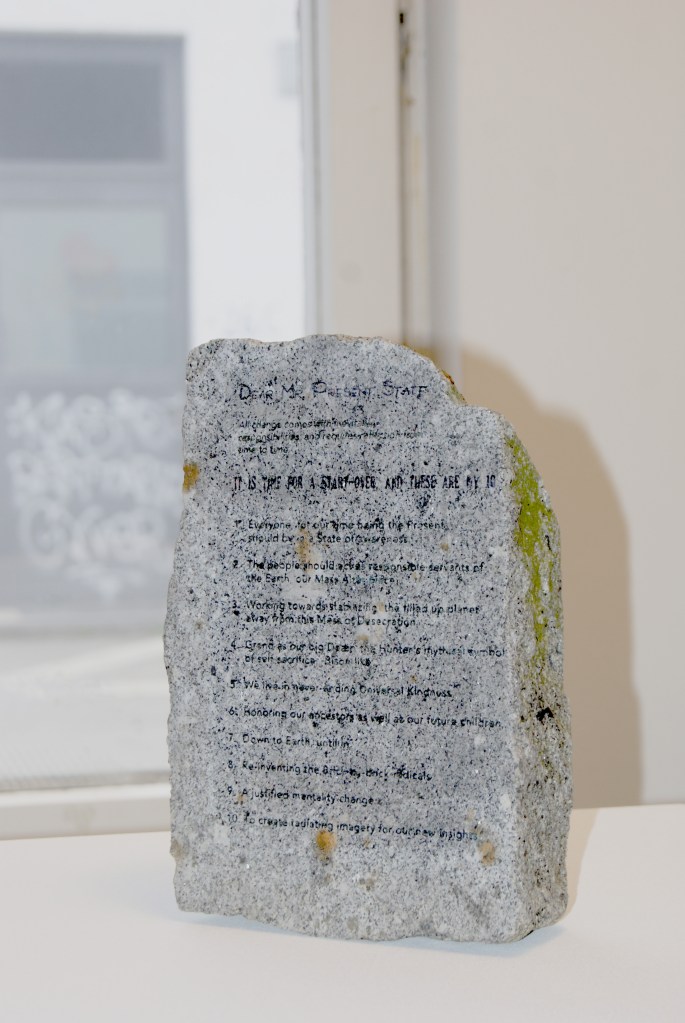 DEAR MR. PRESENT STATE
All change comes with
responsibilities, and
time to time.
IT IS TIME FOR A START-OVER, AND THESE ARE MY 10
1. Everyone of our time being the Present,
should be in a State of awareness.
2. The people should act as responsible servants of
the Earth, our Mass
3. Working towards stabilizing the tilted up planet
away from this Mass of Desecration.
4. Grand as our big Deer, the Hunter's mythical symbol
of self sacrifice. Bison like
5. We live in never-ending Universal Kindness
6. Honoring our ancestors as well as our future children
7. Down to Earth, until in
8. Re-inventing the brick-by-brick radicals
9. A justified mentality change
10. To create radiating imagery for our new insights